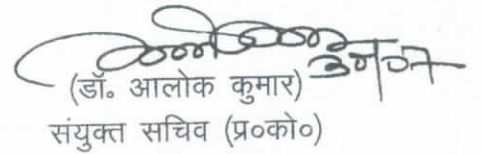 (डॉ० आलोक कुमार)
संयुक्त सचिव (प्र०को०)